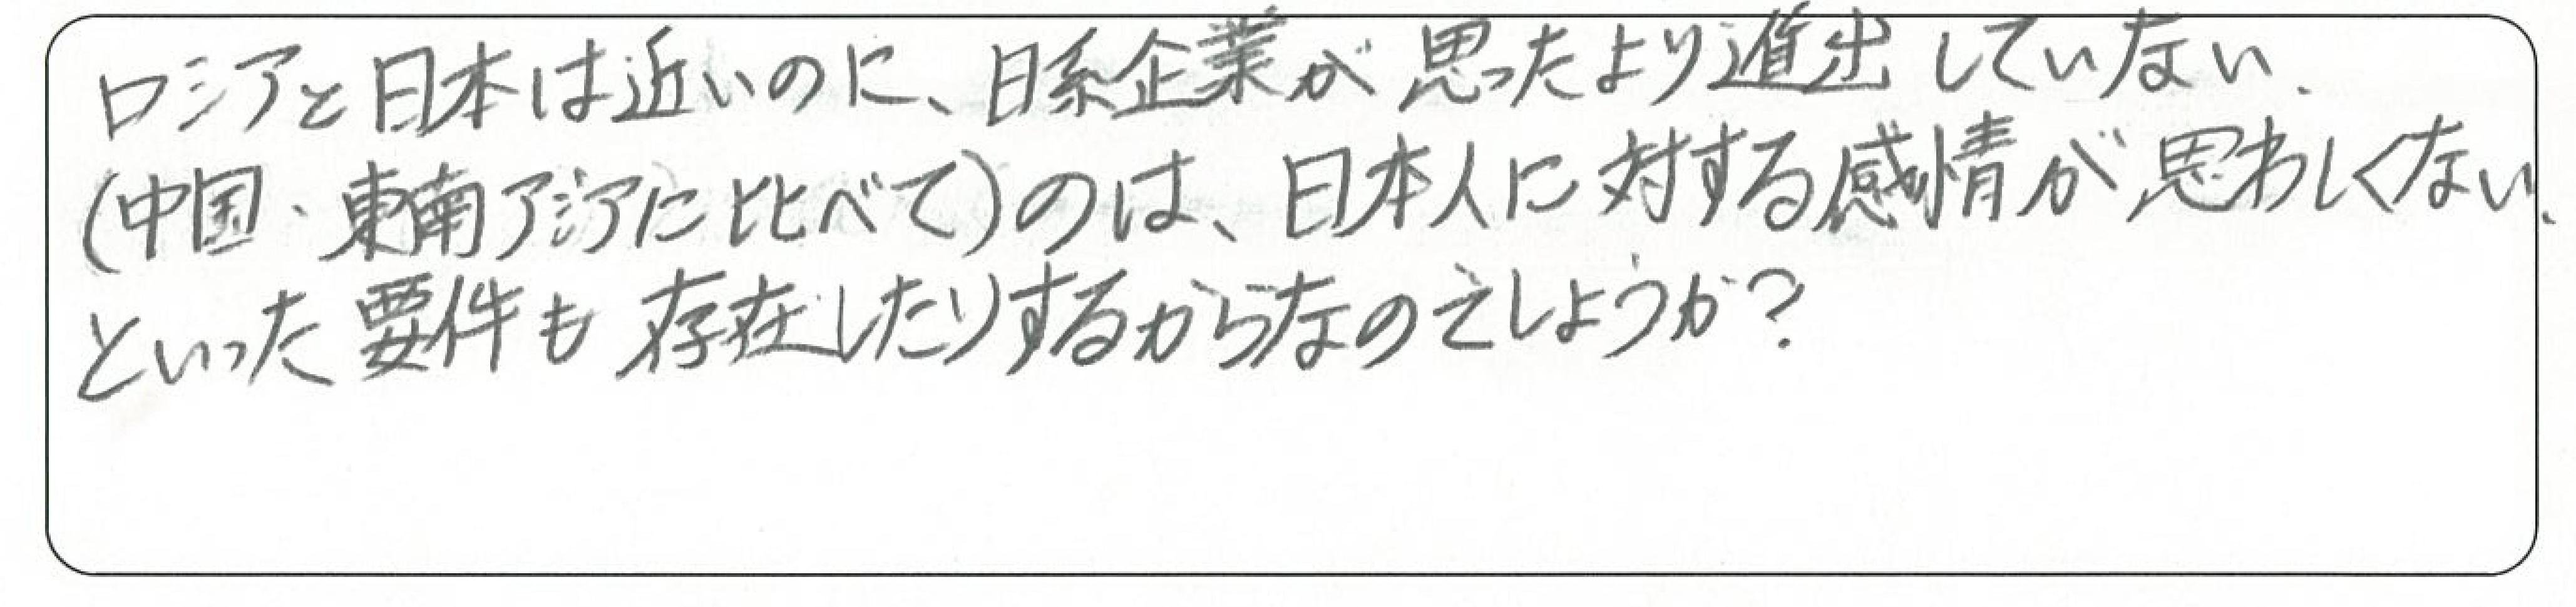 ロシアと日本は近いのに、日系企業が思ったより進出していない、
(中国・東南アジアに比べて)のは、日本人に対する感情が思わしくない、
といった要件も存在したりするからなのでしょうか?